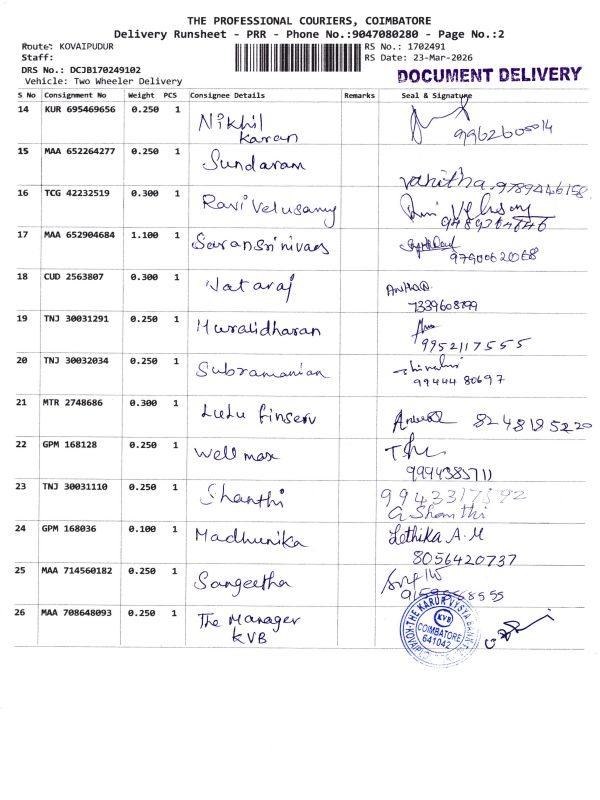 THE PROFESSIONAL COURIERS, COIMBATORE
Delivery Runsheet - PRR - Phone No.:9047080280 - Page No.:2
Route: KOVAIPUDUR RS No.: 1702491
Staff: RS Date: 23-Mar-2026
DRS No.: DCJB170249102
Vehicle: Two Wheeler Delivery
DOCUMENT DELIVERY
S No Consignment No Weight PCS Consignee Details Remarks Seal & Signature
14 KUR 695469656 0.250 1 Nikhil
Karan
15 MAA 652264277 0.250 1 Sundaram
Vanitha. 9789446158
16 TCG 42232519 0.300 1 Ravi Velusamy
17 MAA 652904684 1.100 1 Saransrinivas
9790062068
18 CUD 2563807 0.300 1 Nataraj
7339608799
19 TNJ 30031291 0.250 1 Muralidharan
9952117555
20 TNJ 30032034 0.250 1 Subramanian
99444 80697
21 MTR 2748686 0.300 1 Lulu finserv 8248185220
22 GPM 168128 0.250 1 Well max
9994385711
23 TNJ 30031110 0.250 1 Shanthi 9943317592
G Shanthi
24 GPM 168036 0.100 1 Madhunika Lethika A.M
8056420737
25 MAA 714560182 0.250 1 Sangeetha
26 MAA 708648093 0.250 1 The Manager
KVB
THE KARUR VYSYA BANK
KVB
COIMBATORE
641042